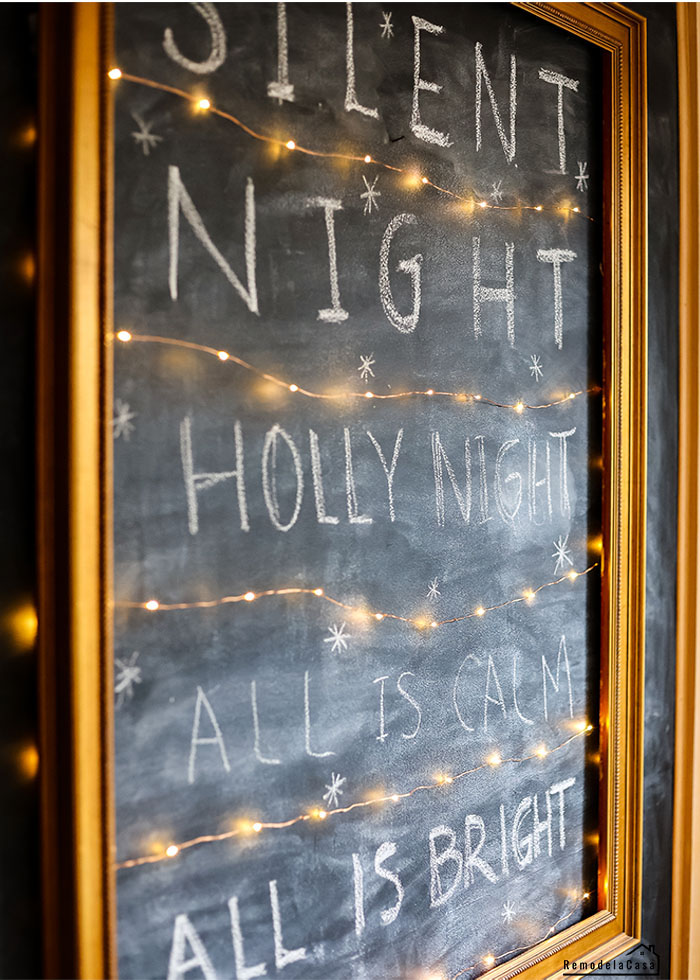 SILENT
NIGHT
HOLLY NIGHT
ALL IS CALM
ALL IS BRIGHT
RemodelaCasa